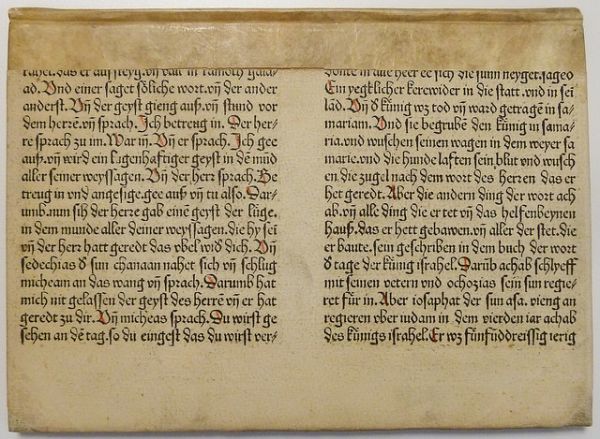 rahel.das er auf steyg.vñ vall in ramoth galaa⸗
ad. Vnd einer saget söliche wort.vñ der ander
anderst. Vñ der geyst gieng auß.vñ stund vor
dem herrē.vñ sprach. Ich betreug in. Der her⸗
re sprach zu im. War iñ. Vñ er sprach. Ich gee
auß.vñ wird ein lugenhaftiger geyst in dē mūd
aller seiner weyssagen. Vñ der herr sprach. Be
treug in vnd angesige.gee auß vñ tu also. Dar⸗
umb.nun sih der herre gab einē geyst der lüge.
in dem munde aller deiner weyssagen.die hy sei
vñ der herr hatt geredt das vbel wid dich. Vñ
sedechias d sun chanaan nahet sich vñ schlug
micheam an das wang vñ sprach. Darumb hat
mich nit gelassen der geyst des herrē vñ er hat
geredt zu dir. Vñ micheas sprach. Du wirst ge
sehen an dē tag.so du eingest das du wirst ver⸗
donte in alle heer ee sich die sunn neyget.saged
Ein yegklicher kerewider in die statt.vnd in sei
lād. Vñ d künig wz tod vñ ward getragē in sa⸗
mariam. Vnd sie begrubē den künig in sama⸗
ria.vnd wuschen seinen wagen in dem weyer sa
marie.vnd die hunde lafften sein blut vnd wusch
en die zugel nach dem wort des herren das er
het geredt. Aber die andern ding der wort ach
ab.vñ alle ding die er tet vñ das helfenbeynen
hauß.das er hett gebawen.vñ aller der stet.die
er baute.sein geschriben in dem buch der wort
d tage der künig israhel. Darüb achab schlyeff
mit seinen vetern vnd ochozias sein sun regie⸗
ret für in. Aber iosaphat der sun asa. vieng an
regieren vber iudam in dem vierden iar achab
des künigs israhel. Er wz fünfuddreissig ierig